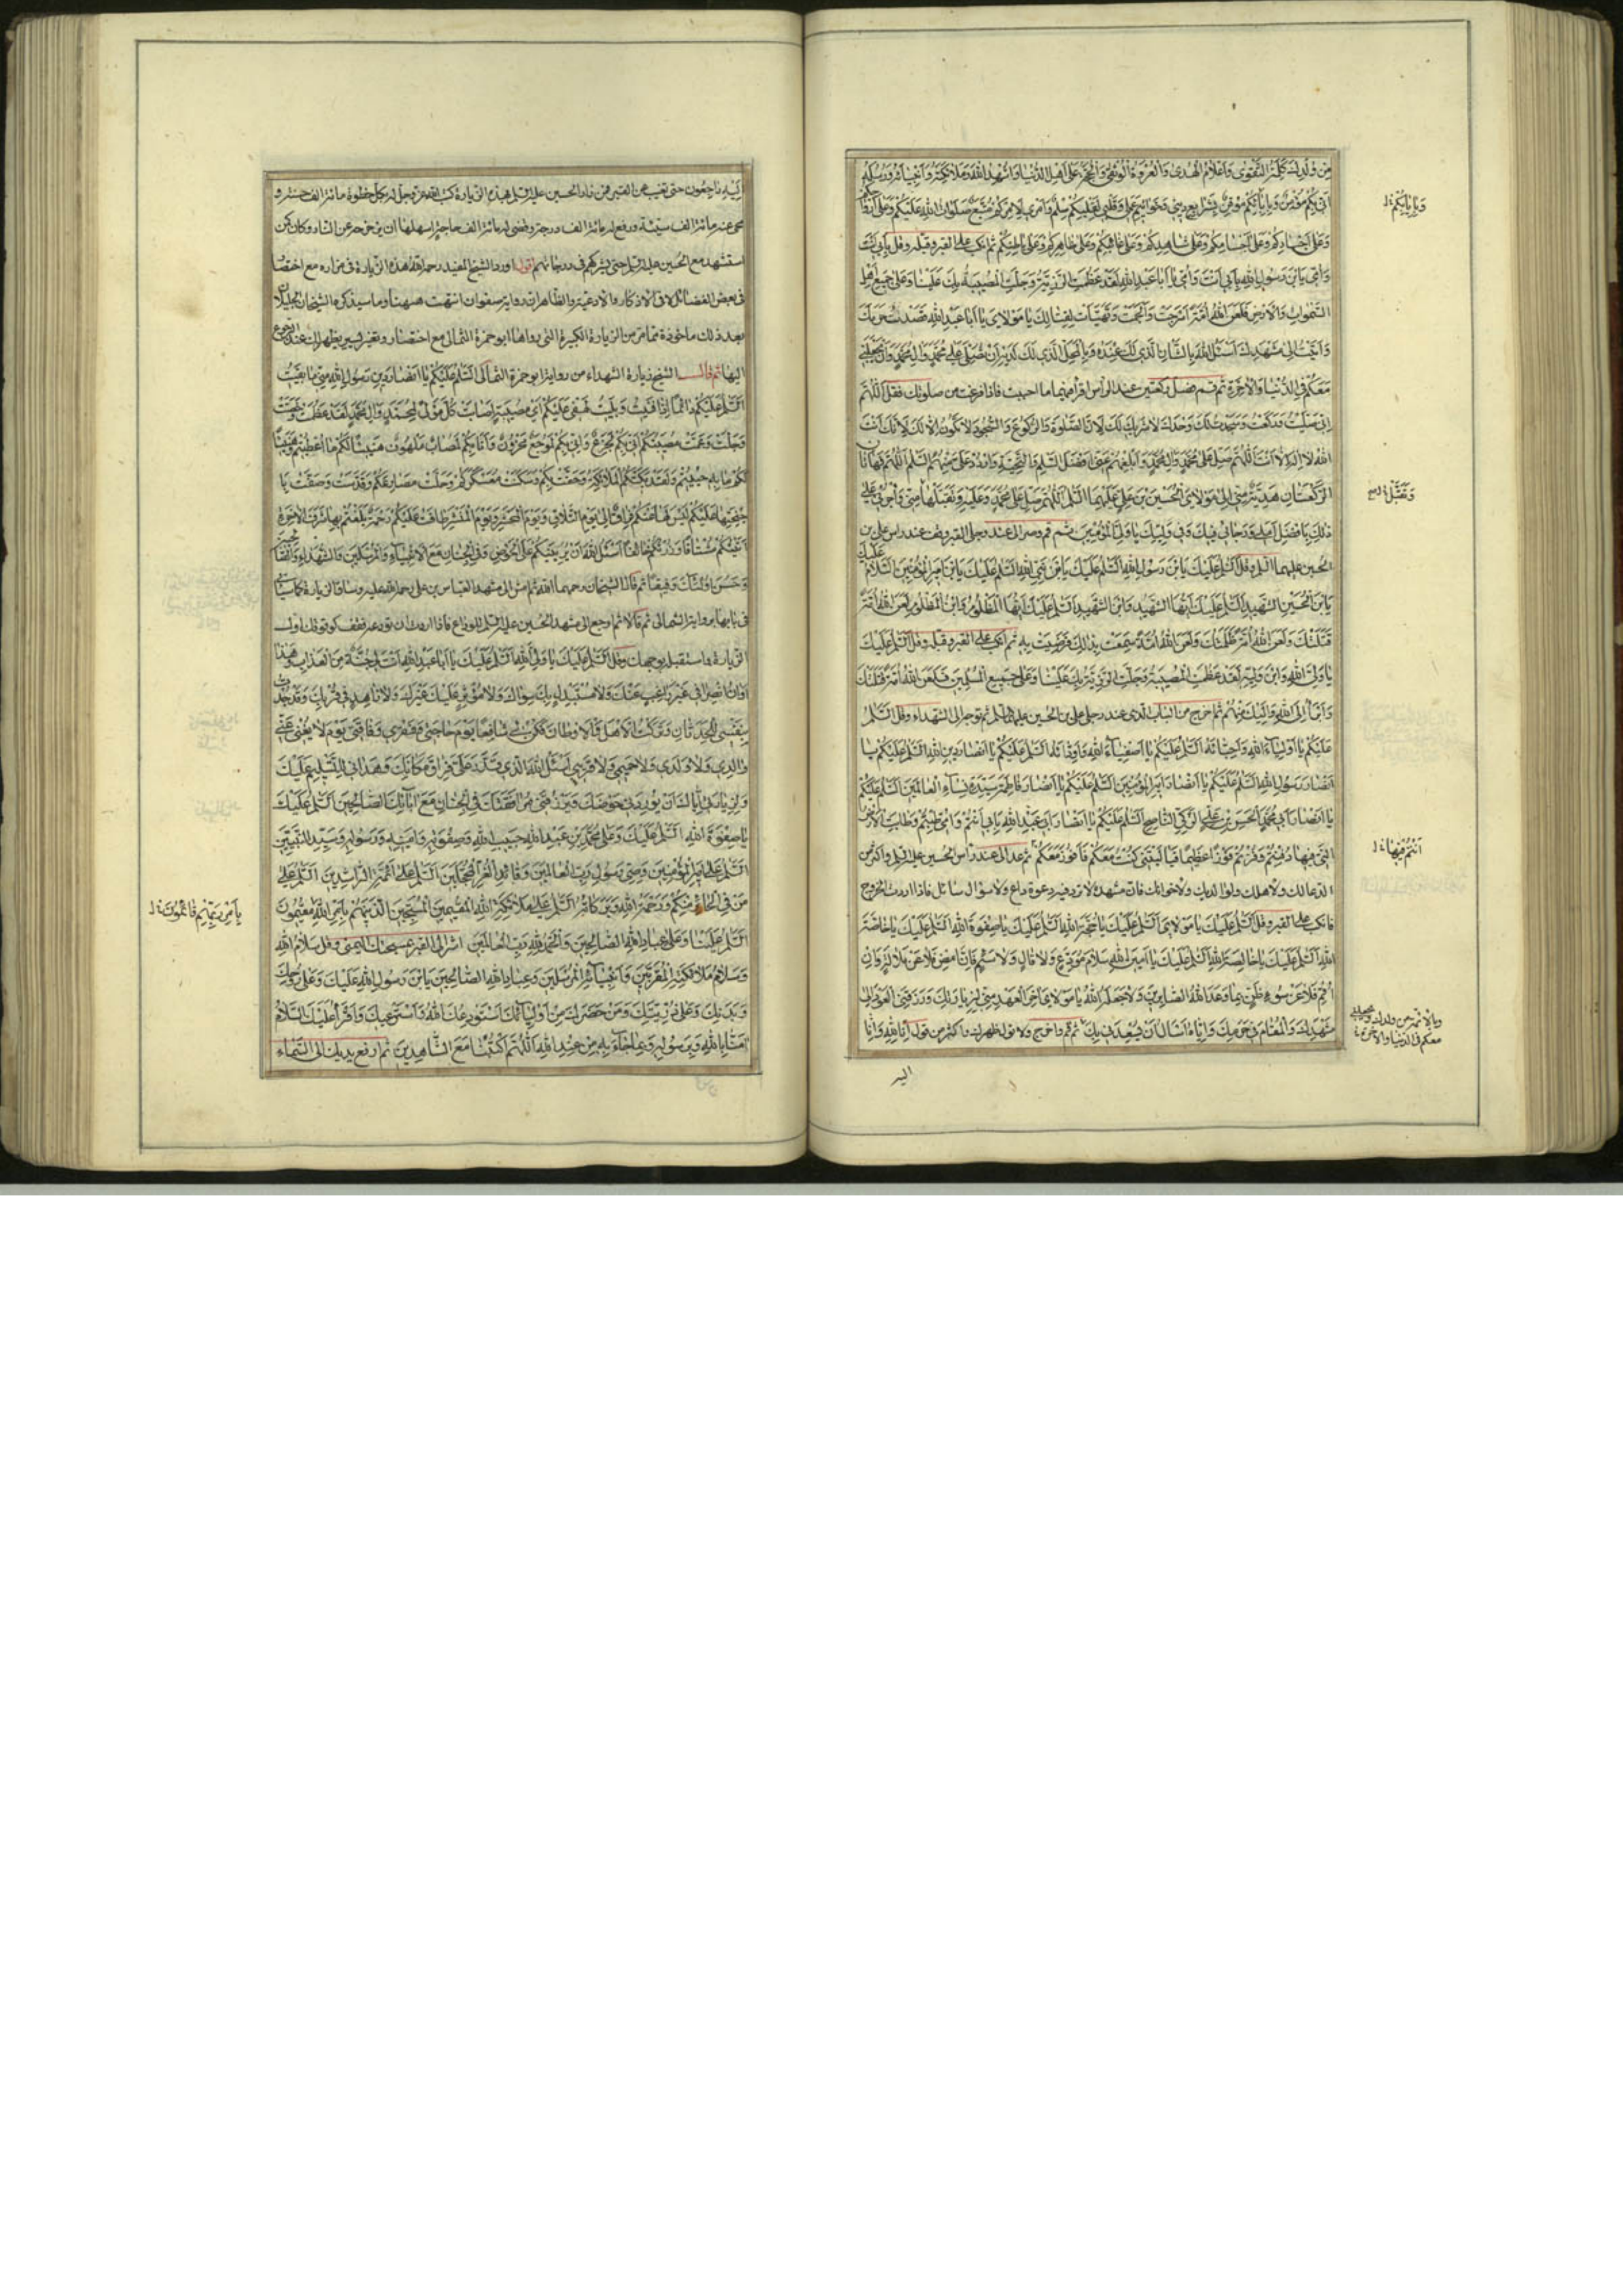 مِنْ وُلْدِكَ كَلِمَةُ التَّقْوَى وَأَعْلَامُ الْهُدَى وَالْعُرْوَةُ الْوُثْقَى وَالْحُجَّةُ عَلَى أَهْلِ الدُّنْيَا وَأُشْهِدُ اللهَ وَمَلَائِكَتَهُ وَأَنْبِيَاءَهُ وَرُسُلَهُ
أَنِّي بِكُمْ مُؤْمِنٌ وَبِإِيَابِكُمْ مُوقِنٌ بِشَرَايِعِ دِينِي وَخَوَاتِيمِ عَمَلِي وَقَلْبِي لِقَلْبِكُمْ سِلْمٌ وَأَمْرِي لِأَمْرِكُمْ مُتَّبِعٌ صَلَوَاتُ اللهِ عَلَيْكُمْ وَعَلَى أَرْوَاحِكُمْ
وَبِإِيَابِكُمْ
وَعَلَى أَجْسَادِكُمْ وَعَلَى أَجْسَامِكُمْ وَعَلَى شَاهِدِكُمْ وَعَلَى غَائِبِكُمْ وَعَلَى ظَاهِرِكُمْ وَعَلَى بَاطِنِكُمْ ثم انكب على القبر وقبله وقل بِأَبِي أَنْتَ
وَأُمِّي يَا ابْنَ رَسُولِ اللهِ بِأَبِي أَنْتَ وَأُمِّي يَا أَبَا عَبْدِ اللهِ لَقَدْ عَظُمَتِ الرَّزِيَّةُ وَجَلَّتِ الْمُصِيبَةُ بِكَ عَلَيْنَا وَعَلَى جَمِيعِ أَهْلِ
السَّمَوَاتِ وَالْأَرْضِ فَلَعَنَ اللهُ أُمَّةً أَسْرَجَتْ وَأَلْجَمَتْ وَتَهَيَّأَتْ لِقِتَالِكَ يَا مَوْلَايَ يَا أَبَا عَبْدِ اللهِ قَصَدْتُ حَرَمَكَ
وَأَتَيْتُ إِلَى مَشْهَدِكَ أَسْئَلُ اللهَ بِالشَّأْنِ الَّذِي لَكَ عِنْدَهُ وَبِالْمَحَلِّ الَّذِي لَكَ لَدَيْهِ أَنْ يُصَلِّيَ عَلَى مُحَمَّدٍ وَآلِ مُحَمَّدٍ وَأَنْ يَجْعَلَنِي
مَعَكُمْ فِي الدُّنْيَا وَالْآخِرَةِ ثم قم فصل ركعتين عند الرأس اقرأ فيهما ما احببت فاذا فرغت من صلوتك فقل اَللّهُمَّ
إِنِّي صَلَّيْتُ وَرَكَعْتُ وَسَجَدْتُ لَكَ وَحْدَكَ لَا شَرِيكَ لَكَ لِأَنَّ الصَّلَوةَ وَالرُّكُوعَ وَالسُّجُودَ لَا يَكُونُ إِلَّا لَكَ لِأَنَّكَ أَنْتَ
اللهُ لَا إِلهَ إِلَّا أَنْتَ اَللّهُمَّ صَلِّ عَلَى مُحَمَّدٍ وَآلِ مُحَمَّدٍ وَأَبْلِغْهُمْ عَنِّي أَفْضَلَ السَّلَامِ وَالتَّحِيَّةِ وَارْدُدْ عَلَيَّ مِنْهُمُ السَّلَامَ اَللّهُمَّ وَهَاتَانِ
الرَّكْعَتَانِ هَدِيَّةٌ مِنِّي إِلَى مَوْلَايَ الْحُسَيْنِ بْنِ عَلِيٍّ عَلَيْهِمَا السَّلَامُ اَللّهُمَّ صَلِّ عَلَى مُحَمَّدٍ وَعَلَيْهِ وَتَقَبَّلْهَا مِنِّي وَأْجُرْنِي عَلَى
ذلِكَ بِأَفْضَلِ أَمَلِي وَرَجَائِي فِيكَ وَفِي وَلِيِّكَ يَا وَلِيَّ الْمُؤْمِنِينَ ثم قم وصر الى عند رجلي القبر وقف عند راس علي بن
الحسين عليهما السلام وقل اَلسَّلَامُ عَلَيْكَ يَا ابْنَ رَسُولِ اللهِ اَلسَّلَامُ عَلَيْكَ يَا ابْنَ نَبِيِّ اللهِ اَلسَّلَامُ عَلَيْكَ يَا ابْنَ أَمِيرِ الْمُؤْمِنِينَ اَلسَّلَامُ عَلَيْكَ
يَا ابْنَ الْحُسَيْنِ الشَّهِيدِ اَلسَّلَامُ عَلَيْكَ أَيُّهَا الشَّهِيدُ وَابْنُ الشَّهِيدِ اَلسَّلَامُ عَلَيْكَ أَيُّهَا الْمَظْلُومُ وَابْنُ الْمَظْلُومِ لَعَنَ اللهُ أُمَّةً
قَتَلَتْكَ وَلَعَنَ اللهُ أُمَّةً ظَلَمَتْكَ وَلَعَنَ اللهُ أُمَّةً سَمِعَتْ بِذلِكَ فَرَضِيَتْ بِهِ ثم انكب على القبر وقبله وقل اَلسَّلَامُ عَلَيْكَ
يَا وَلِيَّ اللهِ وَابْنَ وَلِيِّهِ لَقَدْ عَظُمَتِ الْمُصِيبَةُ وَجَلَّتِ الرَّزِيَّةُ بِكَ عَلَيْنَا وَعَلَى جَمِيعِ الْمُسْلِمِينَ فَلَعَنَ اللهُ أُمَّةً قَتَلَتْكَ
وَأَبْرَأُ إِلَى اللهِ وَإِلَيْكَ مِنْهُمْ ثم اخرج من الباب الذي عند رجلي علي بن الحسين عليهما السلام ثم توجه الى الشهداء وقل اَلسَّلَامُ
عَلَيْكُمْ يَا أَوْلِيَاءَ اللهِ وَأَحِبَّاءَهُ اَلسَّلَامُ عَلَيْكُمْ يَا أَصْفِيَاءَ اللهِ وَأَوِدَّاءَهُ اَلسَّلَامُ عَلَيْكُمْ يَا أَنْصَارَ دِينِ اللهِ اَلسَّلَامُ عَلَيْكُمْ يَا
أَنْصَارَ رَسُولِ اللهِ اَلسَّلَامُ عَلَيْكُمْ يَا أَنْصَارَ أَمِيرِ الْمُؤْمِنِينَ اَلسَّلَامُ عَلَيْكُمْ يَا أَنْصَارَ فَاطِمَةَ سَيِّدَةِ نِسَاءِ الْعَالَمِينَ اَلسَّلَامُ عَلَيْكُمْ
يَا أَنْصَارَ أَبِي مُحَمَّدٍ الْحَسَنِ بْنِ عَلِيٍّ الزَّكِيِّ النَّاصِحِ اَلسَّلَامُ عَلَيْكُمْ يَا أَنْصَارَ أَبِي عَبْدِ اللهِ بِأَبِي أَنْتُمْ وَأُمِّي طِبْتُمْ وَطَابَتِ الْأَرْضُ
الَّتِي فِيهَا دُفِنْتُمْ وَفُزْتُمْ فَوْزًا عَظِيمًا فَيَا لَيْتَنِي كُنْتُ مَعَكُمْ فَأَفُوزَ مَعَكُمْ ثم عد الى عند رأس الحسين عليه السلام واكثر من
أَنْتُمْ فِيهَا
الدعاء لك ولاهلك ولوالديك ولاخوانك فان مشهده لا ترد فيه دعوة داع ولا سؤال سائل فاذا اردت الخروج
فانكب على القبر وقل اَلسَّلَامُ عَلَيْكَ يَا مَوْلَايَ اَلسَّلَامُ عَلَيْكَ يَا حُجَّةَ اللهِ اَلسَّلَامُ عَلَيْكَ يَا صِفْوَةَ اللهِ اَلسَّلَامُ عَلَيْكَ يَا خَاصَّةَ
اللهِ اَلسَّلَامُ عَلَيْكَ يَا خَالِصَةَ اللهِ اَلسَّلَامُ عَلَيْكَ يَا أَمِينَ اللهِ سَلَامَ مُوَدِّعٍ لَا قَالٍ وَلَا سَئِمٍ فَإِنْ أَمْضِ فَلَا عَنْ مَلَالَةٍ وَإِنْ
أُقِمْ فَلَا عَنْ سُوءِ ظَنٍّ بِمَا وَعَدَ اللهُ الصَّابِرِينَ وَلَا جَعَلَهُ اللهُ يَا مَوْلَايَ آخِرَ الْعَهْدِ مِنِّي لِزِيَارَتِكَ وَرَزَقَنِي الْعَوْدَ إِلَى
مَشْهَدِكَ وَالْمُقَامَ فِي حَرَمِكَ وَإِيَّاهُ أَسْأَلُ أَنْ يُسْعِدَنِي بِكَ ثم قم واخرج ولا تول ظهرك واكثر من قول إِنَّا لِلّهِ وَإِنَّا
وبالأئمة من ولدك ويجعلني
معكم في الدنيا والآخرة
اليه
إِلَيْهِ رَاجِعُونَ حتى تغيب عن القبر فمن زار الحسين عليه السلام بهذه الزيارة كتب الله عز وجل له بكل خطوة مائة الف حسنة و
محى عنه مائة الف سيئة ورفع له مائة الف درجة وقضى له مائة الف حاجة اسهلها ان يزحزحه عن النار وكان كمن
استشهد مع الحسين عليه السلام حتى يشركهم في درجاتهم اقول اورد الشيخ المفيد رحمه الله هذه الزيارة في مزاره مع اختصار
في بعض الفضائل لا في الاذكار والادعية والظاهر ان رواية صفوان انتهت ههنا وما سيذكره الشيخان الجليلان
بعد ذلك ماخوذة مما مر من الزيارة الكبيرة التي رواها ابو حمزة الثمالي مع اختصار وتغيير يسير يظهر لك عند الرجوع
اليها ثم قال الشيخ زيارة الشهداء من رواية ابو حمزة الثمالي اَلسَّلَامُ عَلَيْكُمْ يَا أَنْصَارَ دِينِ رَسُولِ اللهِ مِنِّي مَا بَقِيتُ
اَلسَّلَامُ عَلَيْكُمْ دَائِمًا إِذَا فَنِيتُ وَبَلِيتُ لَهْفِي عَلَيْكُمْ أَيُّ مُصِيبَةٍ أَصَابَتْ كُلَّ مَوْلًى لِمُحَمَّدٍ وَآلِ مُحَمَّدٍ لَقَدْ عَظُمَتْ وَخُصَّتْ
وَجَلَّتْ وَعَمَّتْ مُصِيبَتُكُمْ إِنِّي بِكُمْ لَجَزِعٌ وَإِنِّي بِكُمْ لَمُوجَعٌ مَحْزُونٌ وَأَنَا بِكُمْ لَمُصَابٌ مَلْهُوفٌ هَنِيئًا لَكُمْ مَا أُعْطِيتُمْ وَهَنِيئًا
لَكُمْ مَا بِهِ حُيِّيتُمْ وَلَقَدْ بَكَتْكُمُ الْمَلَائِكَةُ وَحَفَّتْ بِكُمْ وَسَكَنَتْ مُعَسْكَرَكُمْ وَحَلَّتْ مَصَارِعَكُمْ وَقَدَّسَتْ وَصَفَّتْ بِأَ
جْنِحَتِهَا عَلَيْكُمْ لَيْسَ لَهَا عَنْكُمْ فِرَاقٌ إِلَى يَوْمِ التَّلَاقِ وَيَوْمِ الْمَحْشَرِ وَيَوْمِ الْمَنْشَرِ طَافَتْ عَلَيْكُمْ رَحْمَةٌ بَلَغْتُمْ بِهَا شَرَفَ الْآخِرَةِ
أَتَيْتُكُمْ مُشْتَاقًا وَزُرْتُكُمْ خَائِفًا أَسْئَلُ اللهَ أَنْ يُرِيَنِيكُمْ عَلَى الْحَوْضِ وَفِي الْجِنَانِ مَعَ الْأَنْبِيَاءِ وَالْمُرْسَلِينَ وَالشُّهَدَاءِ وَالصَّالِحِينَ
وَحَسُنَ أُولئِكَ رَفِيقًا ثم قال الشيخان رحمهما الله ثم امش الى مشهد العباس بن علي رحمة الله عليه وساقا الزيارة كما سيأتي
في بابها برواية الثمالي ثم قالا ثم ارجع الى مشهد الحسين عليه السلام للوداع فاذا اردت ان تودعه فقف كوقوفك اول
الزيارة واستقبله بوجهك وقل اَلسَّلَامُ عَلَيْكَ يَا وَلِيَّ اللهِ اَلسَّلَامُ عَلَيْكَ يَا أَبَا عَبْدِ اللهِ أَنْتَ لِي جُنَّةٌ مِنَ الْعَذَابِ وَهَذَا
أَوَانُ انْصِرَافِي غَيْرَ رَاغِبٍ عَنْكَ وَلَا مُسْتَبْدِلٍ بِكَ سِوَاكَ وَلَا مُؤْثِرٍ عَلَيْكَ غَيْرَكَ وَلَا زَاهِدٍ فِي قُرْبِكَ وَقَدْ جُدْتُ
بِنَفْسِي لِلْحَدَثَانِ وَتَرَكْتُ الْأَهْلَ وَالْأَوْطَانَ فَكُنْ لِي شَافِعًا يَوْمَ حَاجَتِي وَفَقْرِي وَفَاقَتِي يَوْمَ لَا يُغْنِي عَنِّي
وَالِدِي وَلَا وَلَدِي وَلَا حَمِيمِي وَلَا قَرِيبِي أَسْئَلُ اللهَ الَّذِي قَدَّرَ عَلَيَّ فِرَاقَ مَكَانِكَ وَهَدَانِي لِلتَّسْلِيمِ عَلَيْكَ
وَلِزِيَارَتِي إِيَّاكَ أَنْ يُورِدَنِي حَوْضَكَ وَيَرْزُقَنِي مُرَافَقَتَكَ فِي الْجِنَانِ مَعَ آبَائِكَ الصَّالِحِينَ اَلسَّلَامُ عَلَيْكَ
يَا صِفْوَةَ اللهِ اَلسَّلَامُ عَلَيْكَ وَعَلَى مُحَمَّدِ بْنِ عَبْدِ اللهِ حَبِيبِ اللهِ وَصِفْوَتِهِ وَأَمِينِهِ وَرَسُولِهِ وَسَيِّدِ النَّبِيِّينَ
اَلسَّلَامُ عَلَى أَمِيرِ الْمُؤْمِنِينَ وَصِيِّ رَسُولِ رَبِّ الْعَالَمِينَ وَقَائِدِ الْغُرِّ الْمُحَجَّلِينَ اَلسَّلَامُ عَلَى الْأَئِمَّةِ الرَّاشِدِينَ اَلسَّلَامُ عَلَى
مَنْ فِي الْحَائِرِ مِنْكُمْ وَرَحْمَةُ اللهِ وَبَرَكَاتُهُ اَلسَّلَامُ عَلَى مَلَائِكَةِ اللهِ الْمُقِيمِينَ الْمُسَبِّحِينَ الَّذِينَ هُمْ بِأَمْرِ اللهِ مُقِيمُونَ
بِأَمْرِ رَبِّهِمْ قَائِمُونَ
اَلسَّلَامُ عَلَيْنَا وَعَلَى عِبَادِ اللهِ الصَّالِحِينَ وَالْحَمْدُ لِلّهِ رَبِّ الْعَالَمِينَ اشر الى القبر بمسبحتك اليمنى وقل سَلَامُ اللهِ
وَسَلَامُ مَلَائِكَتِهِ الْمُقَرَّبِينَ وَأَنْبِيَائِهِ الْمُرْسَلِينَ وَعِبَادِ اللهِ الصَّالِحِينَ يَا ابْنَ رَسُولِ اللهِ عَلَيْكَ وَعَلَى رُوحِكَ
وَبَدَنِكَ وَعَلَى ذُرِّيَّتِكَ وَمَنْ حَضَرَكَ مِنْ أَوْلِيَائِكَ أَسْتَوْدِعُكَ اللهَ وَأَسْتَرْعِيكَ وَأَقْرَأُ عَلَيْكَ السَّلَامَ
آمَنَّا بِاللهِ وَبِرَسُولِهِ وَبِمَا جَاءَ بِهِ مِنْ عِنْدِ اللهِ اَللّهُمَّ اكْتُبْنَا مَعَ الشَّاهِدِينَ ثم ارفع يديك الى السماء